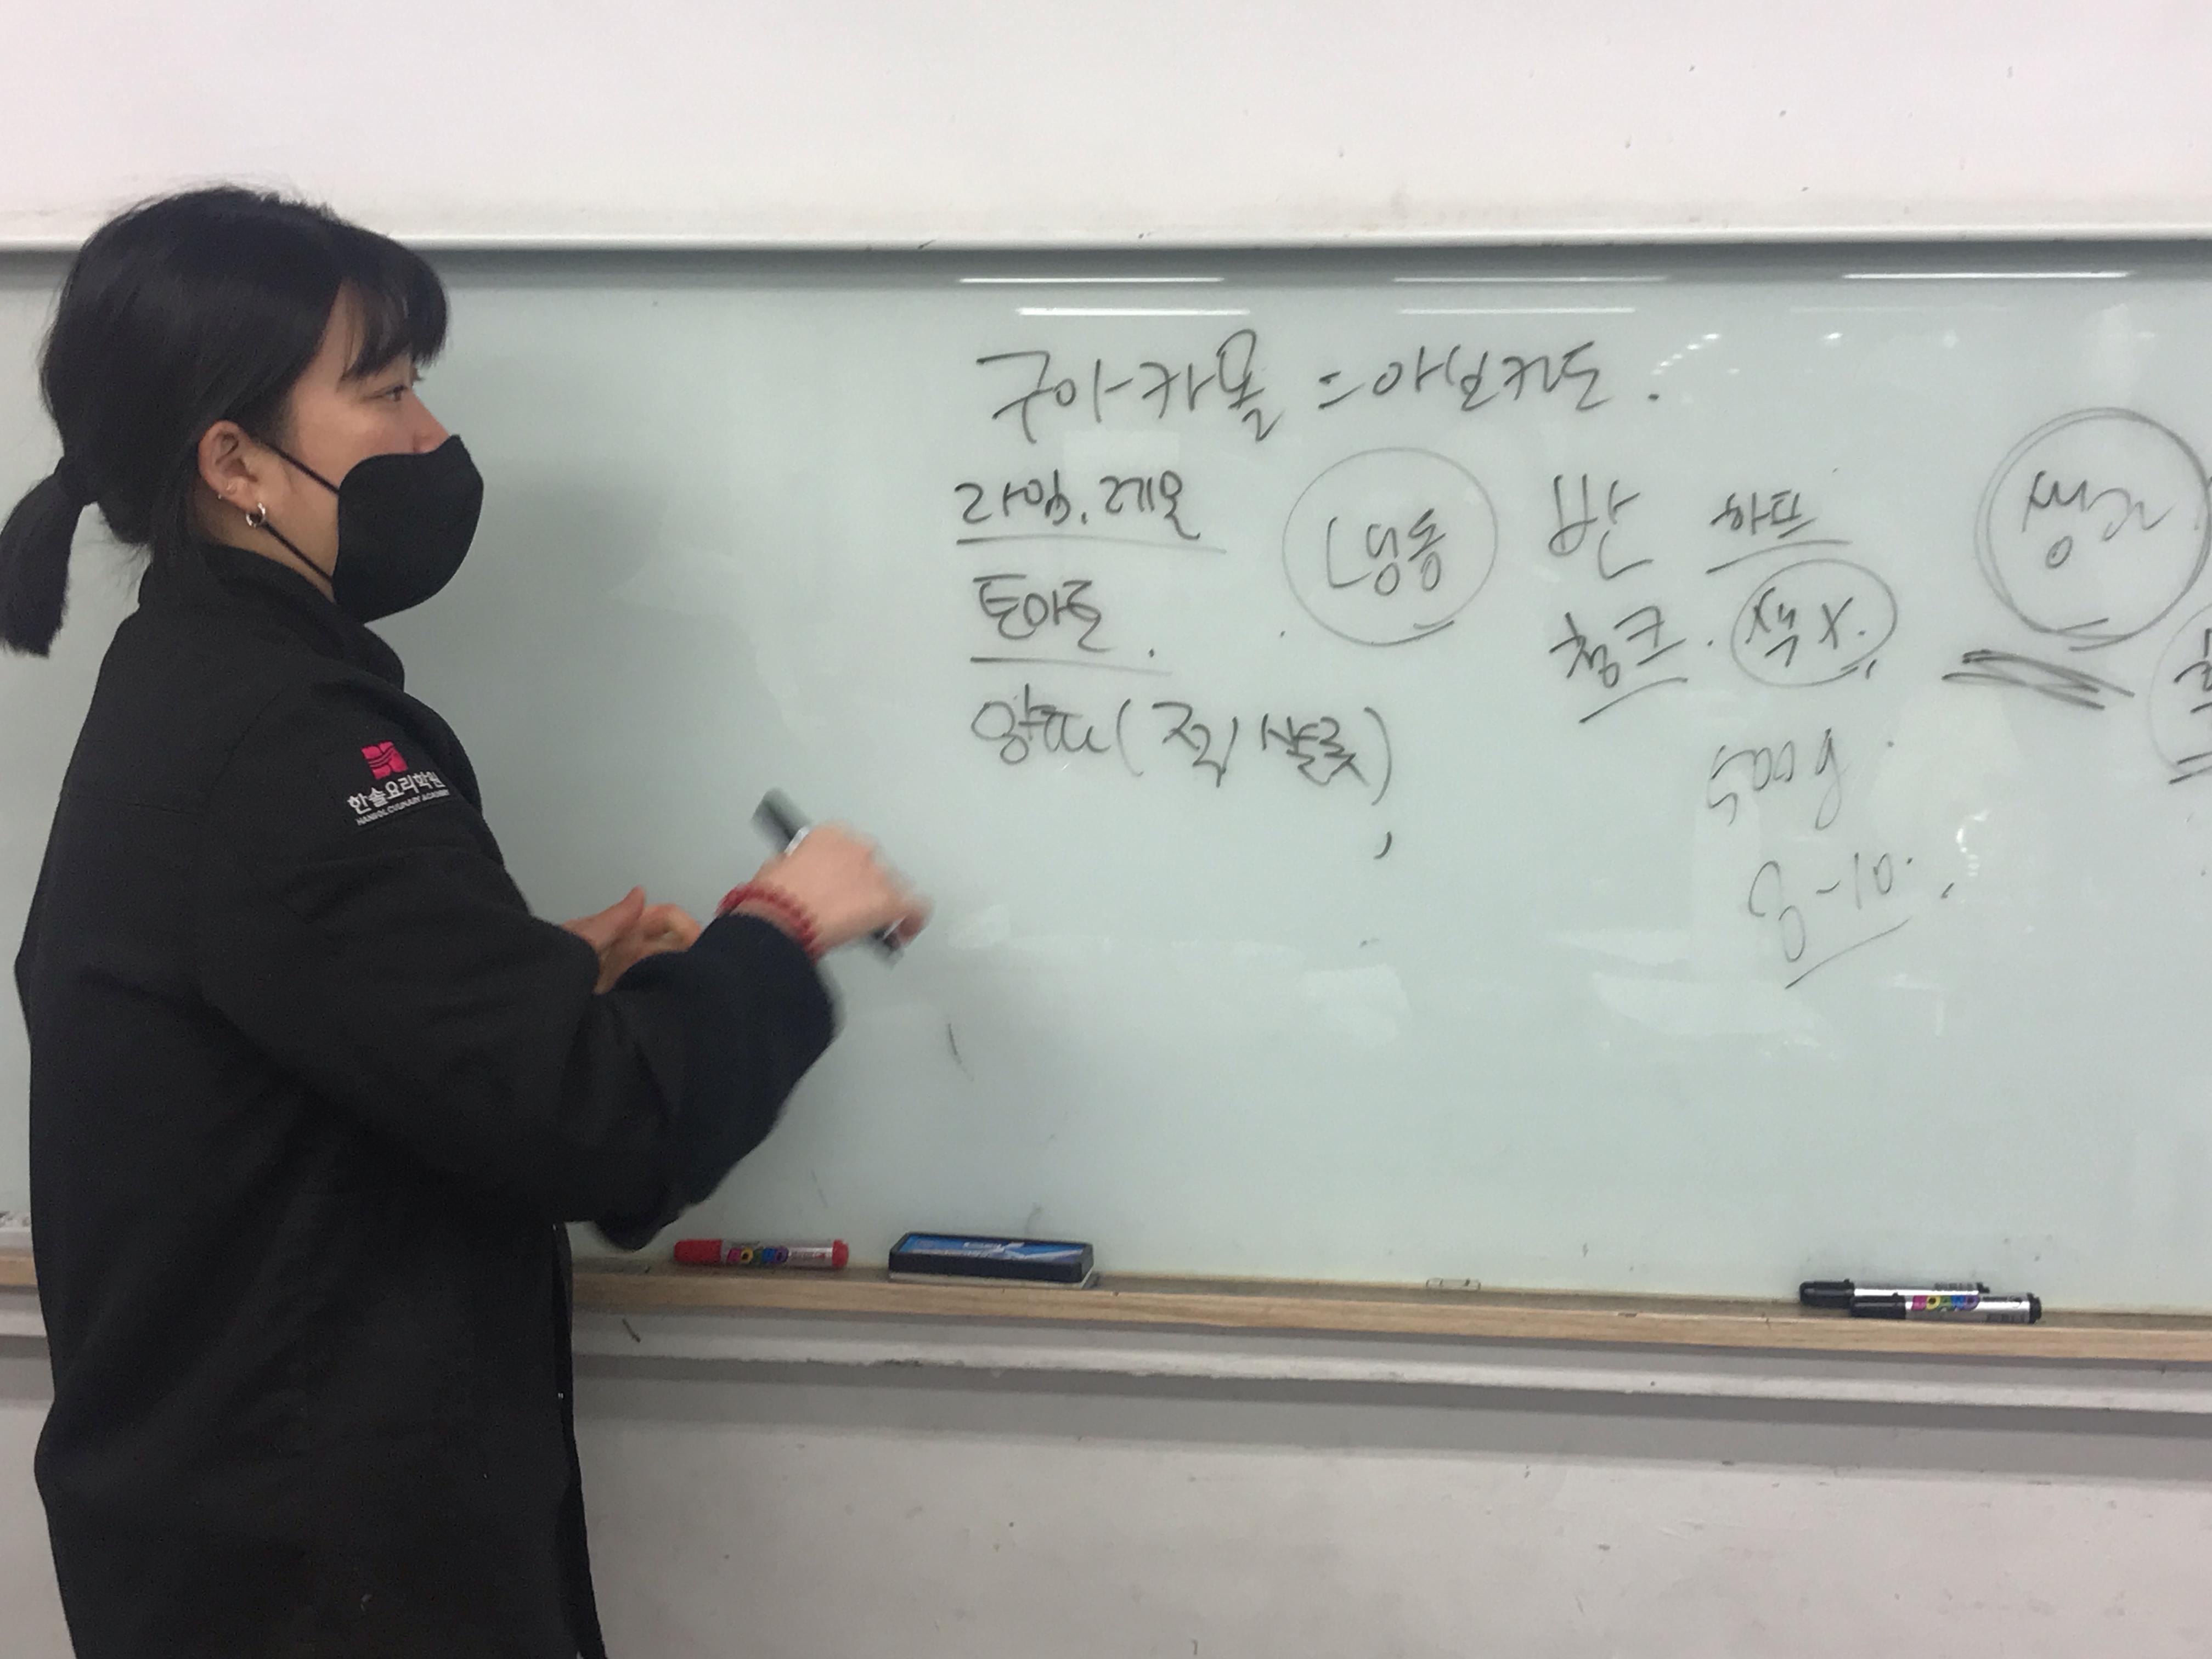 구아카몰 = 아보카도.
라임, 레몬
토마토.
양파 (적, 샬롯)
냉동
반 하프
청크. 색 X.
500g.
8-10.
생과
한솔요리학원
HANSOL CULINARY ACADEMY